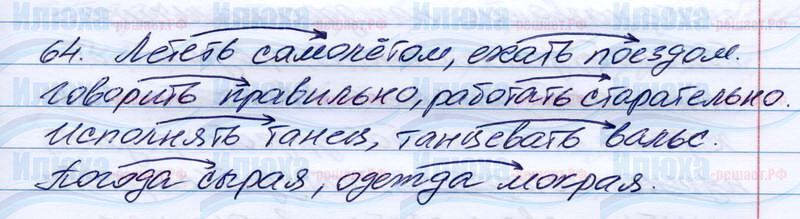 64. Лететь самолётом, ехать поездом.
Говорить правильно, работать старательно.
Исполнять танец, танцевать вальс.
Погода сырая, одежда мокрая.